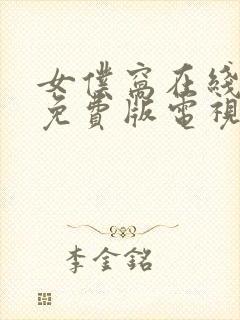 女僕窩在綫
免費版電視
李金銘